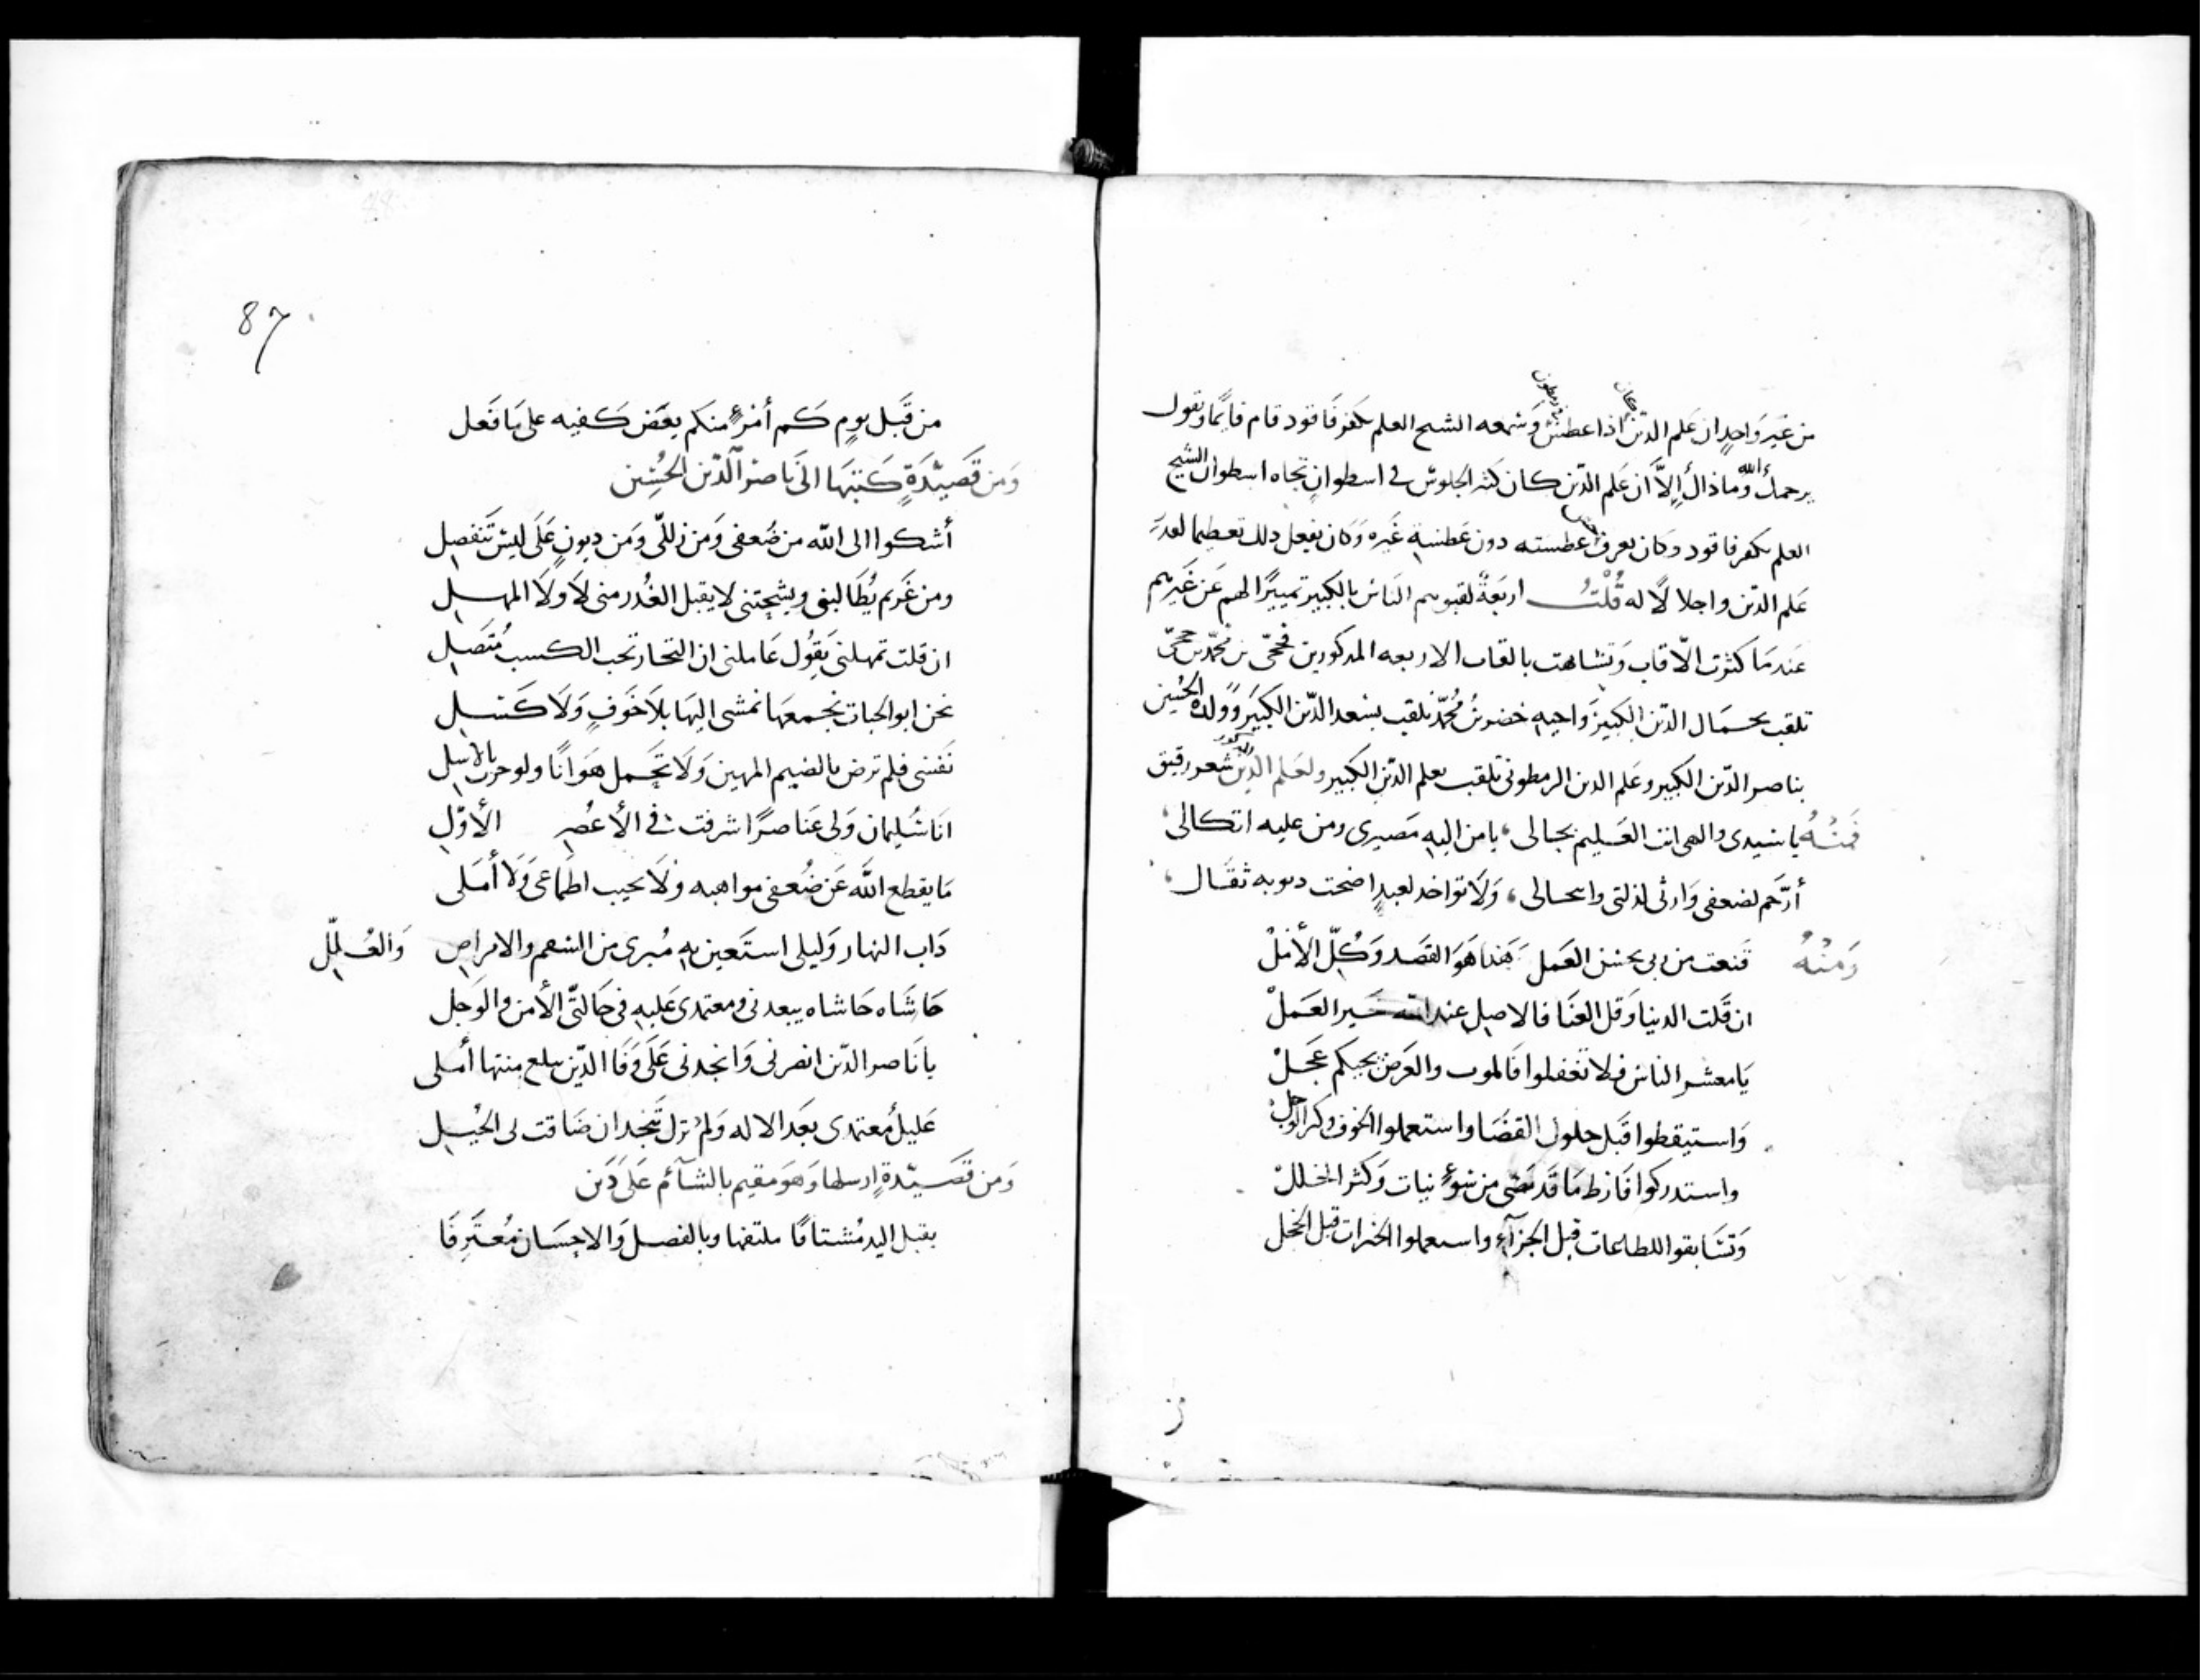 من غَير وَاحدٍ ان عَلم الدّين اذا عطسَ وَسَمعه الشيح العلم بكفرفاقود قام قايمًا ويقول
يرحمك الله وماذاك إلاّ أن عَلم الدّين كان كثير الجلوس في اسطوانٍ تجاه اسطوان الشيخ
العلم بكفرفاقود وكان يعرف عطسته دون عَطسهٍ غَيره وَكان يفعل دلك تعطيما لقدر
عَلم الدّين واجلالًا له قُلْتُ اربَعَةٌ لقبوهم النّاس بالكبير تمييزًا لهم عَن غَيرهم
عَندمَا كثرت الالقاب وَتشابهت بالقاب الاربعه المدكورين فحجّى بن محمّد بن حجّى
تلقب بجمَال الدّين الكبير وَاخيهِ خضر بن مُحمّد تلقب بسَعد الدّين الكبير وَولده الحُسَين
بناصر الدّين الكبير وعَلم الدين الرمطونى تلقب بعلم الدّين الكبير ولعَلم الدّين شعر رقيق
فَمنْهُ يا سَيدى والهى انت العَليم بحالى، يا من اليهِ مَصيرى ومن عليه اتكالى،
أرحَم لضعفى وَارثى لذلتى وانحالى، وَلَا تواخد لعبدٍ اضحت دنوبه ثقَال،
وَمنْهُ قَنعت من ربى بحسن العَمل هَذا هَوَ القصَد وَكُلّ الأمَلْ
ان قَلت الدنيا وَقل العنَا فالاصل عند الله خَير العَملْ
يَا معشر الناس فلا تغفلوا فالموت والعَرض يجيكم عَجلْ
وَاستيقطوا قبَل حلول القضَا واستعملوا الخوف وكثر الوجلْ
واستدركوا فَارط مَا قَد مَضى من سُوءٍ نيات وَكثر الخللْ
وَتسَابقوا للطاعات قبل الجزآءِ واستعملوا الخيرات قبل الخجل
87
من قَبل يومٍ كَم أمرءٍ منكم يعَض كَفيه على مَا فَعل
وَمن قَصيْدَةٍ كَتبهَا الى نَاصر الّدين الحُسَين
أشكوا الى الله من ضُعفى وَمن زللّى وَمن ديونٍ عَلَى ليسَ تَنفصِل
ومن غَريم يُطَالبنى ويشجتنى لا يقبل العُدر منى لَا ولَا المهلِ
ان قلت تمهلنى يَقوُل عَاملنى ان التجار تحب الكسب مُتصَل
نحن ابوا لحبات نجمعهَا نمشى اليهَا بلَا خَوفٍ وَلَا كَسَلِ
نَفسى فلم ترض بالضيم المهين وَلَا تحَمل هَوَانًا ولو حزت بالاسل
انَا سُليمان وَلى عَناصرًا شرفت فى الأعصُر الأوّلِ
مَا يقطع الله عَن ضُعفى مواهبه ولَا يخيب اطمَاعى وَلَا أمَلى
دَاب النهار وَليلى استَعين بهِ مُبرى من السقم والامراض وَالعُلَلِ
حَاشَاه حَاشاه يبعدنى ومعتمدى عَليهِ فى حَالتَّى الأمن والوَجل
يا نَاصر الدّين انصرنى وَانجدنى عَلَى وَفَا الدّين بلع منتها أمَلى
عَليكُ مُعتمدى بعَد الاله وَلمْ تزل تنجَدان ضَاقت لى الحيَلِ
وَمن قَصيْدةٍ ارسلها وَهوَ مقيم بالشآئم عَلَى دَين
يقبل اليد مُشتاقًا ملتهفا وبالفصل وَالاحِسَان مُعتَرفَا